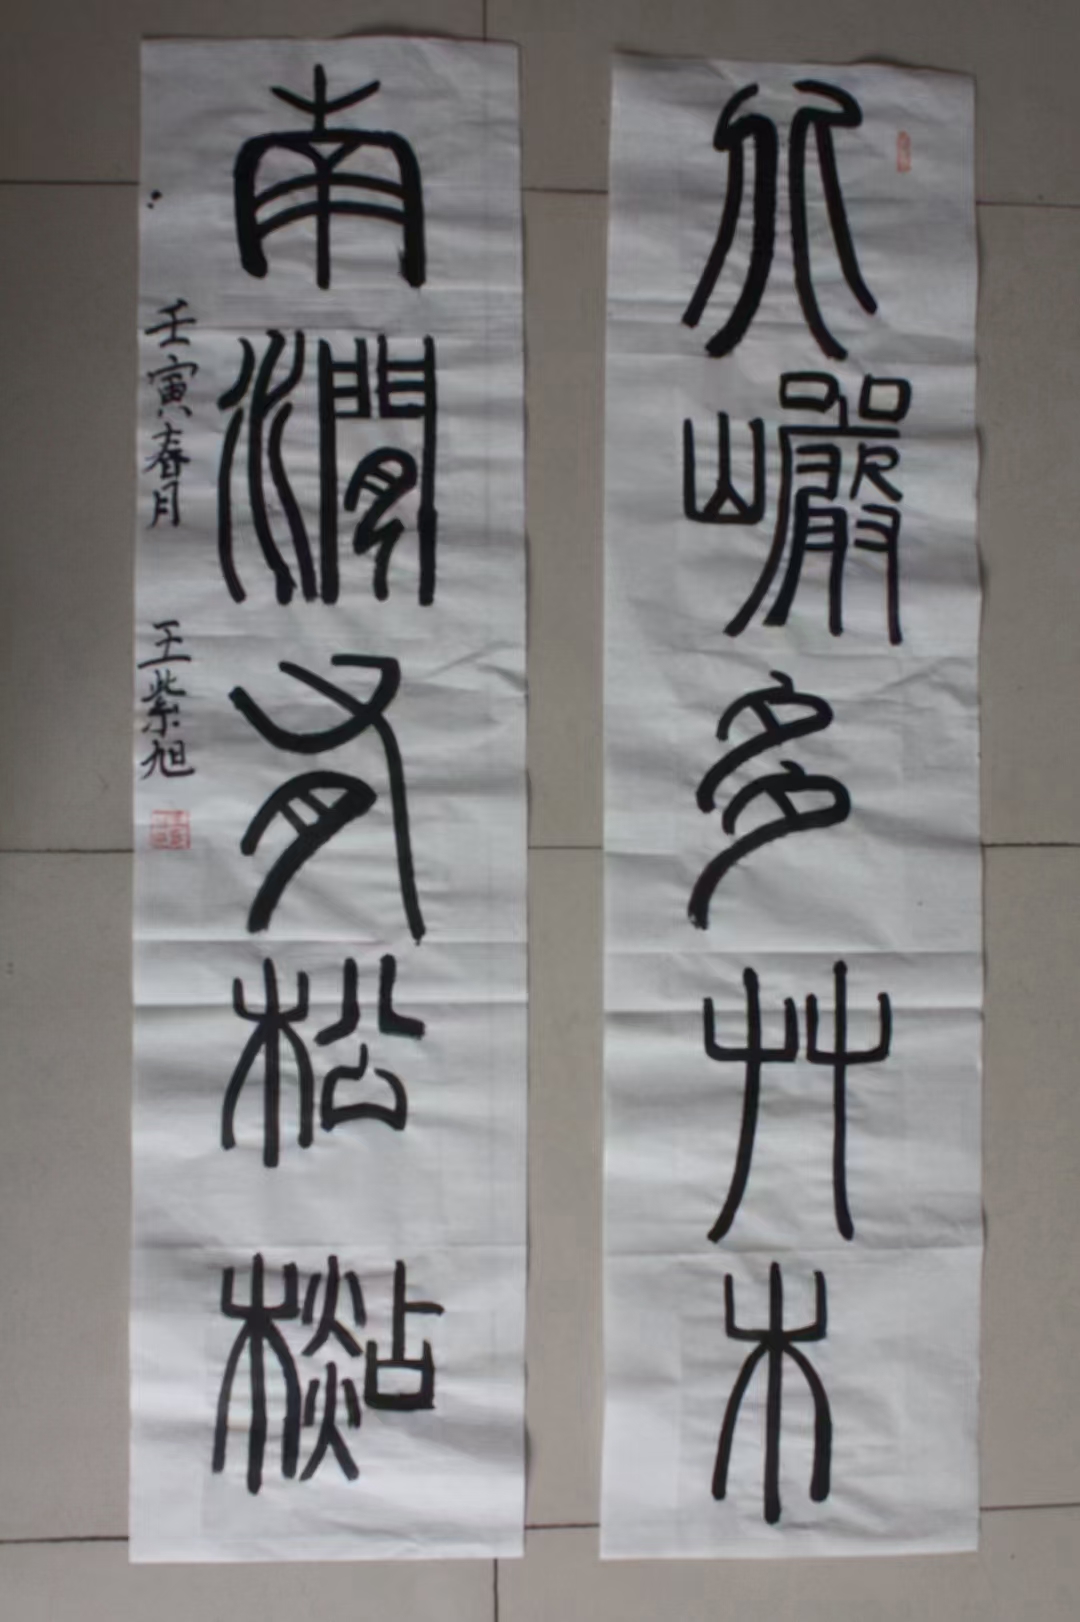 北巖多艸木
南澗有松
壬寅春月 王紫旭